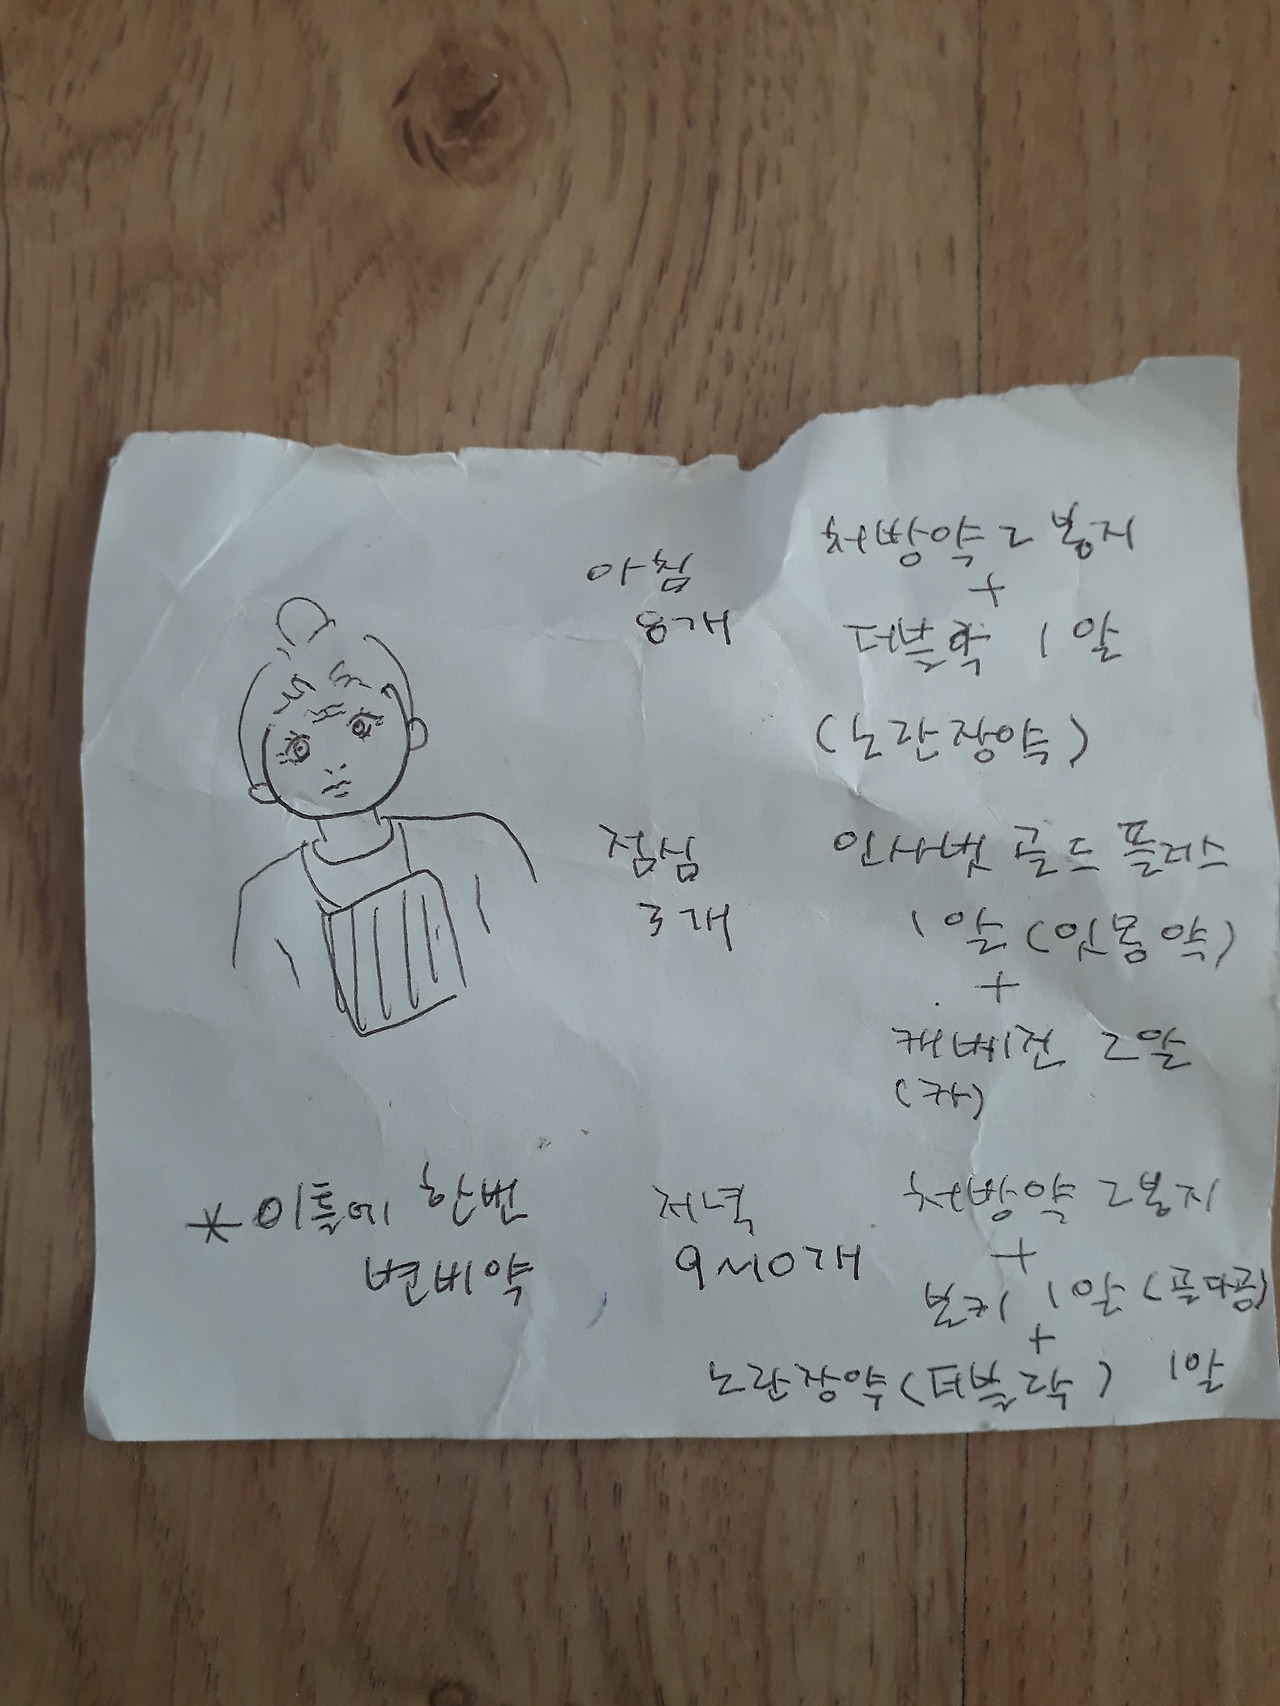 아침
8개
처방약 2봉지
+
더블락 1알
(노란장약)
점심
3개
인사벤 골드 플러스
1알 (잇몸약)
+
캬베진 2알
(캬)
저녁
9~10개
처방약 2봉지
+
볼키 1알 (골다공)
+
노란장약 (더블락) 1알
* 이틀에 한번
변비약